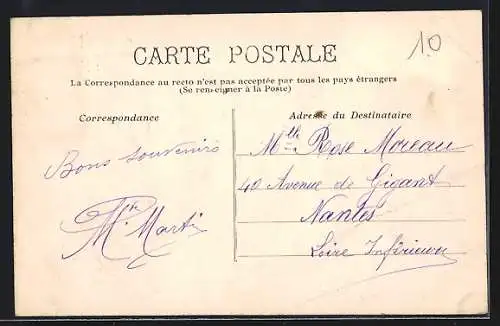 10
CARTE POSTALE
La Correspondance au recto n'est pas acceptée par tous les pays étrangers
(Se renseigner à la Poste)
Correspondance
Adresse du Destinataire
Bons souvenirs
Mlle Rose Moreau
40 Avenue de Gigant
Nantes
Loire Inférieure